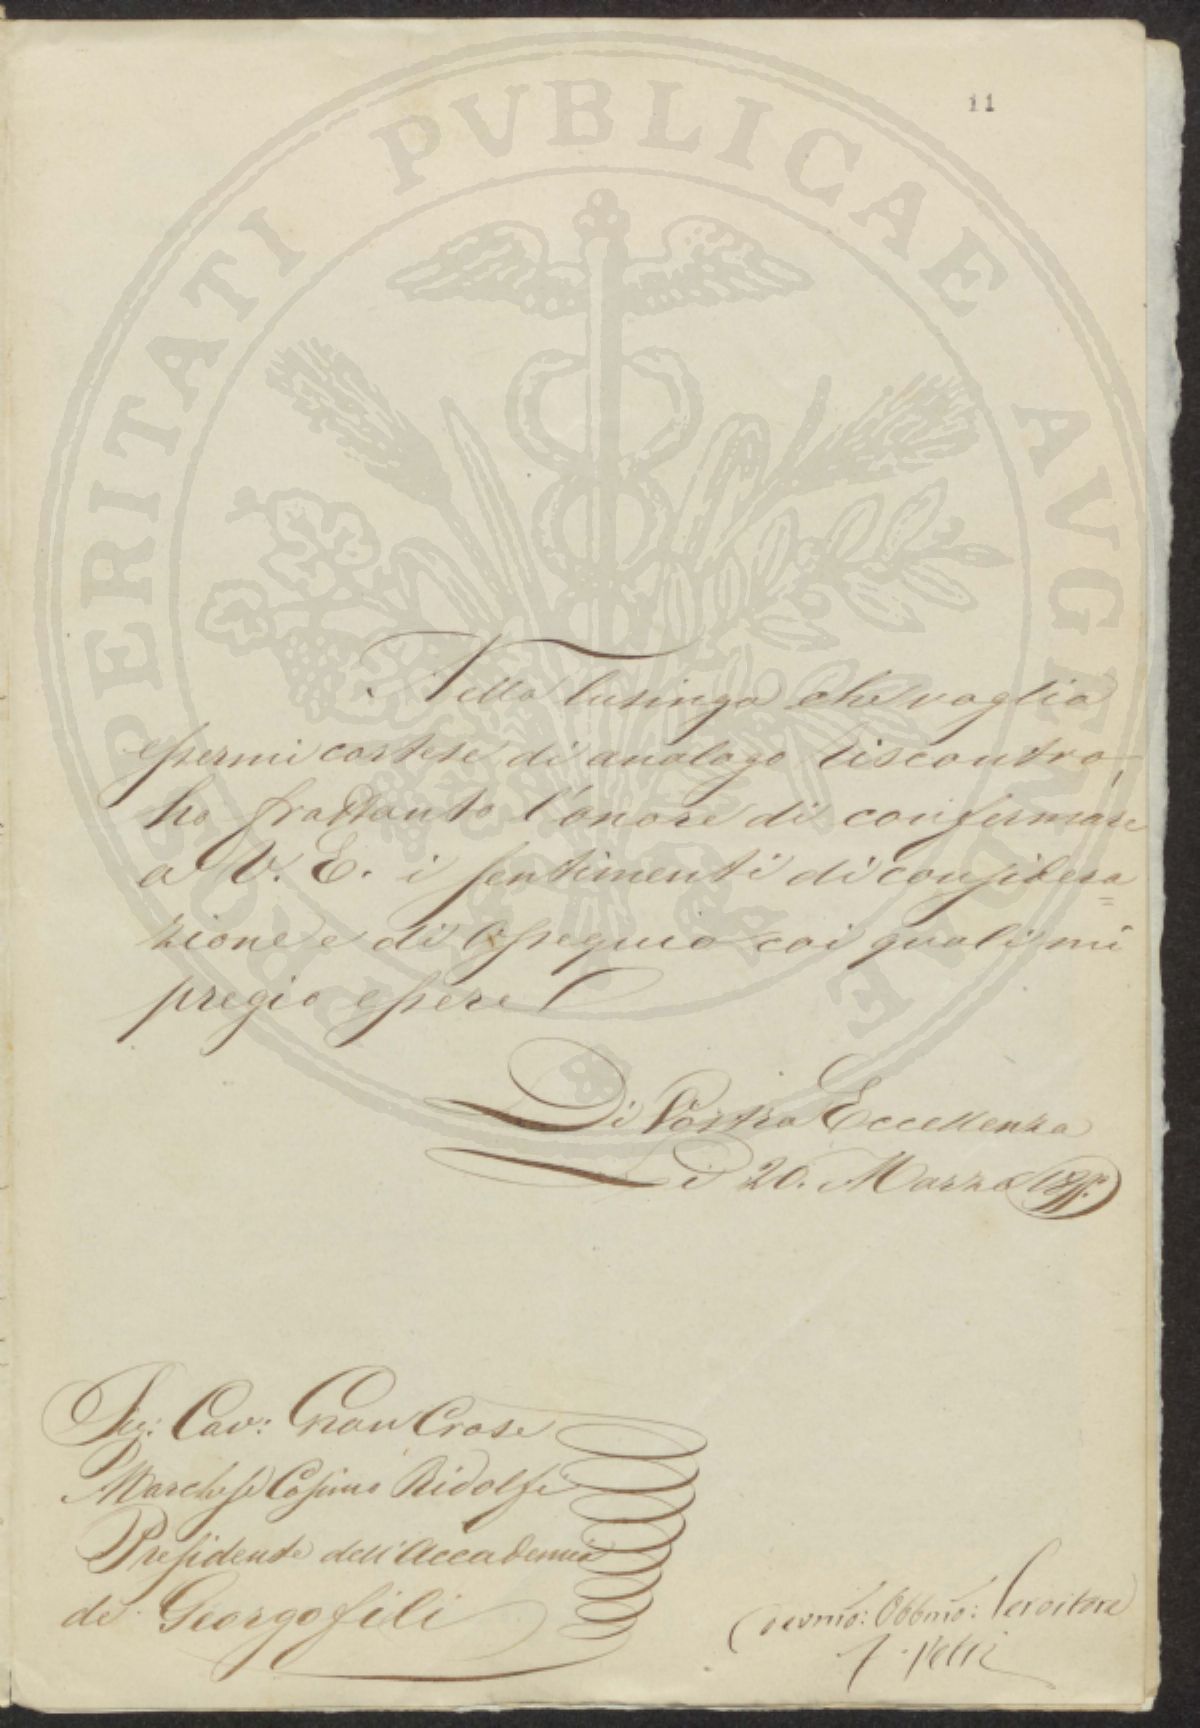 11
PROSPERITATI PVBLICAE AVGENDAE
Nella lusinga che voglia
essermi cortese di analogo riscontro,
ho frattanto l'onore di confermare
a V. E. i sentimenti di considera
zione e di Ossequio coi quali mi
pregio essere
Di Vostra Eccellenza
Li 20. Marzo
Sig: Cav: Gran Croce
Marchese Cosimo Ridolfi
Presidente dell'Accademia
de Georgofili
Devmo: Obbmo: Servitore